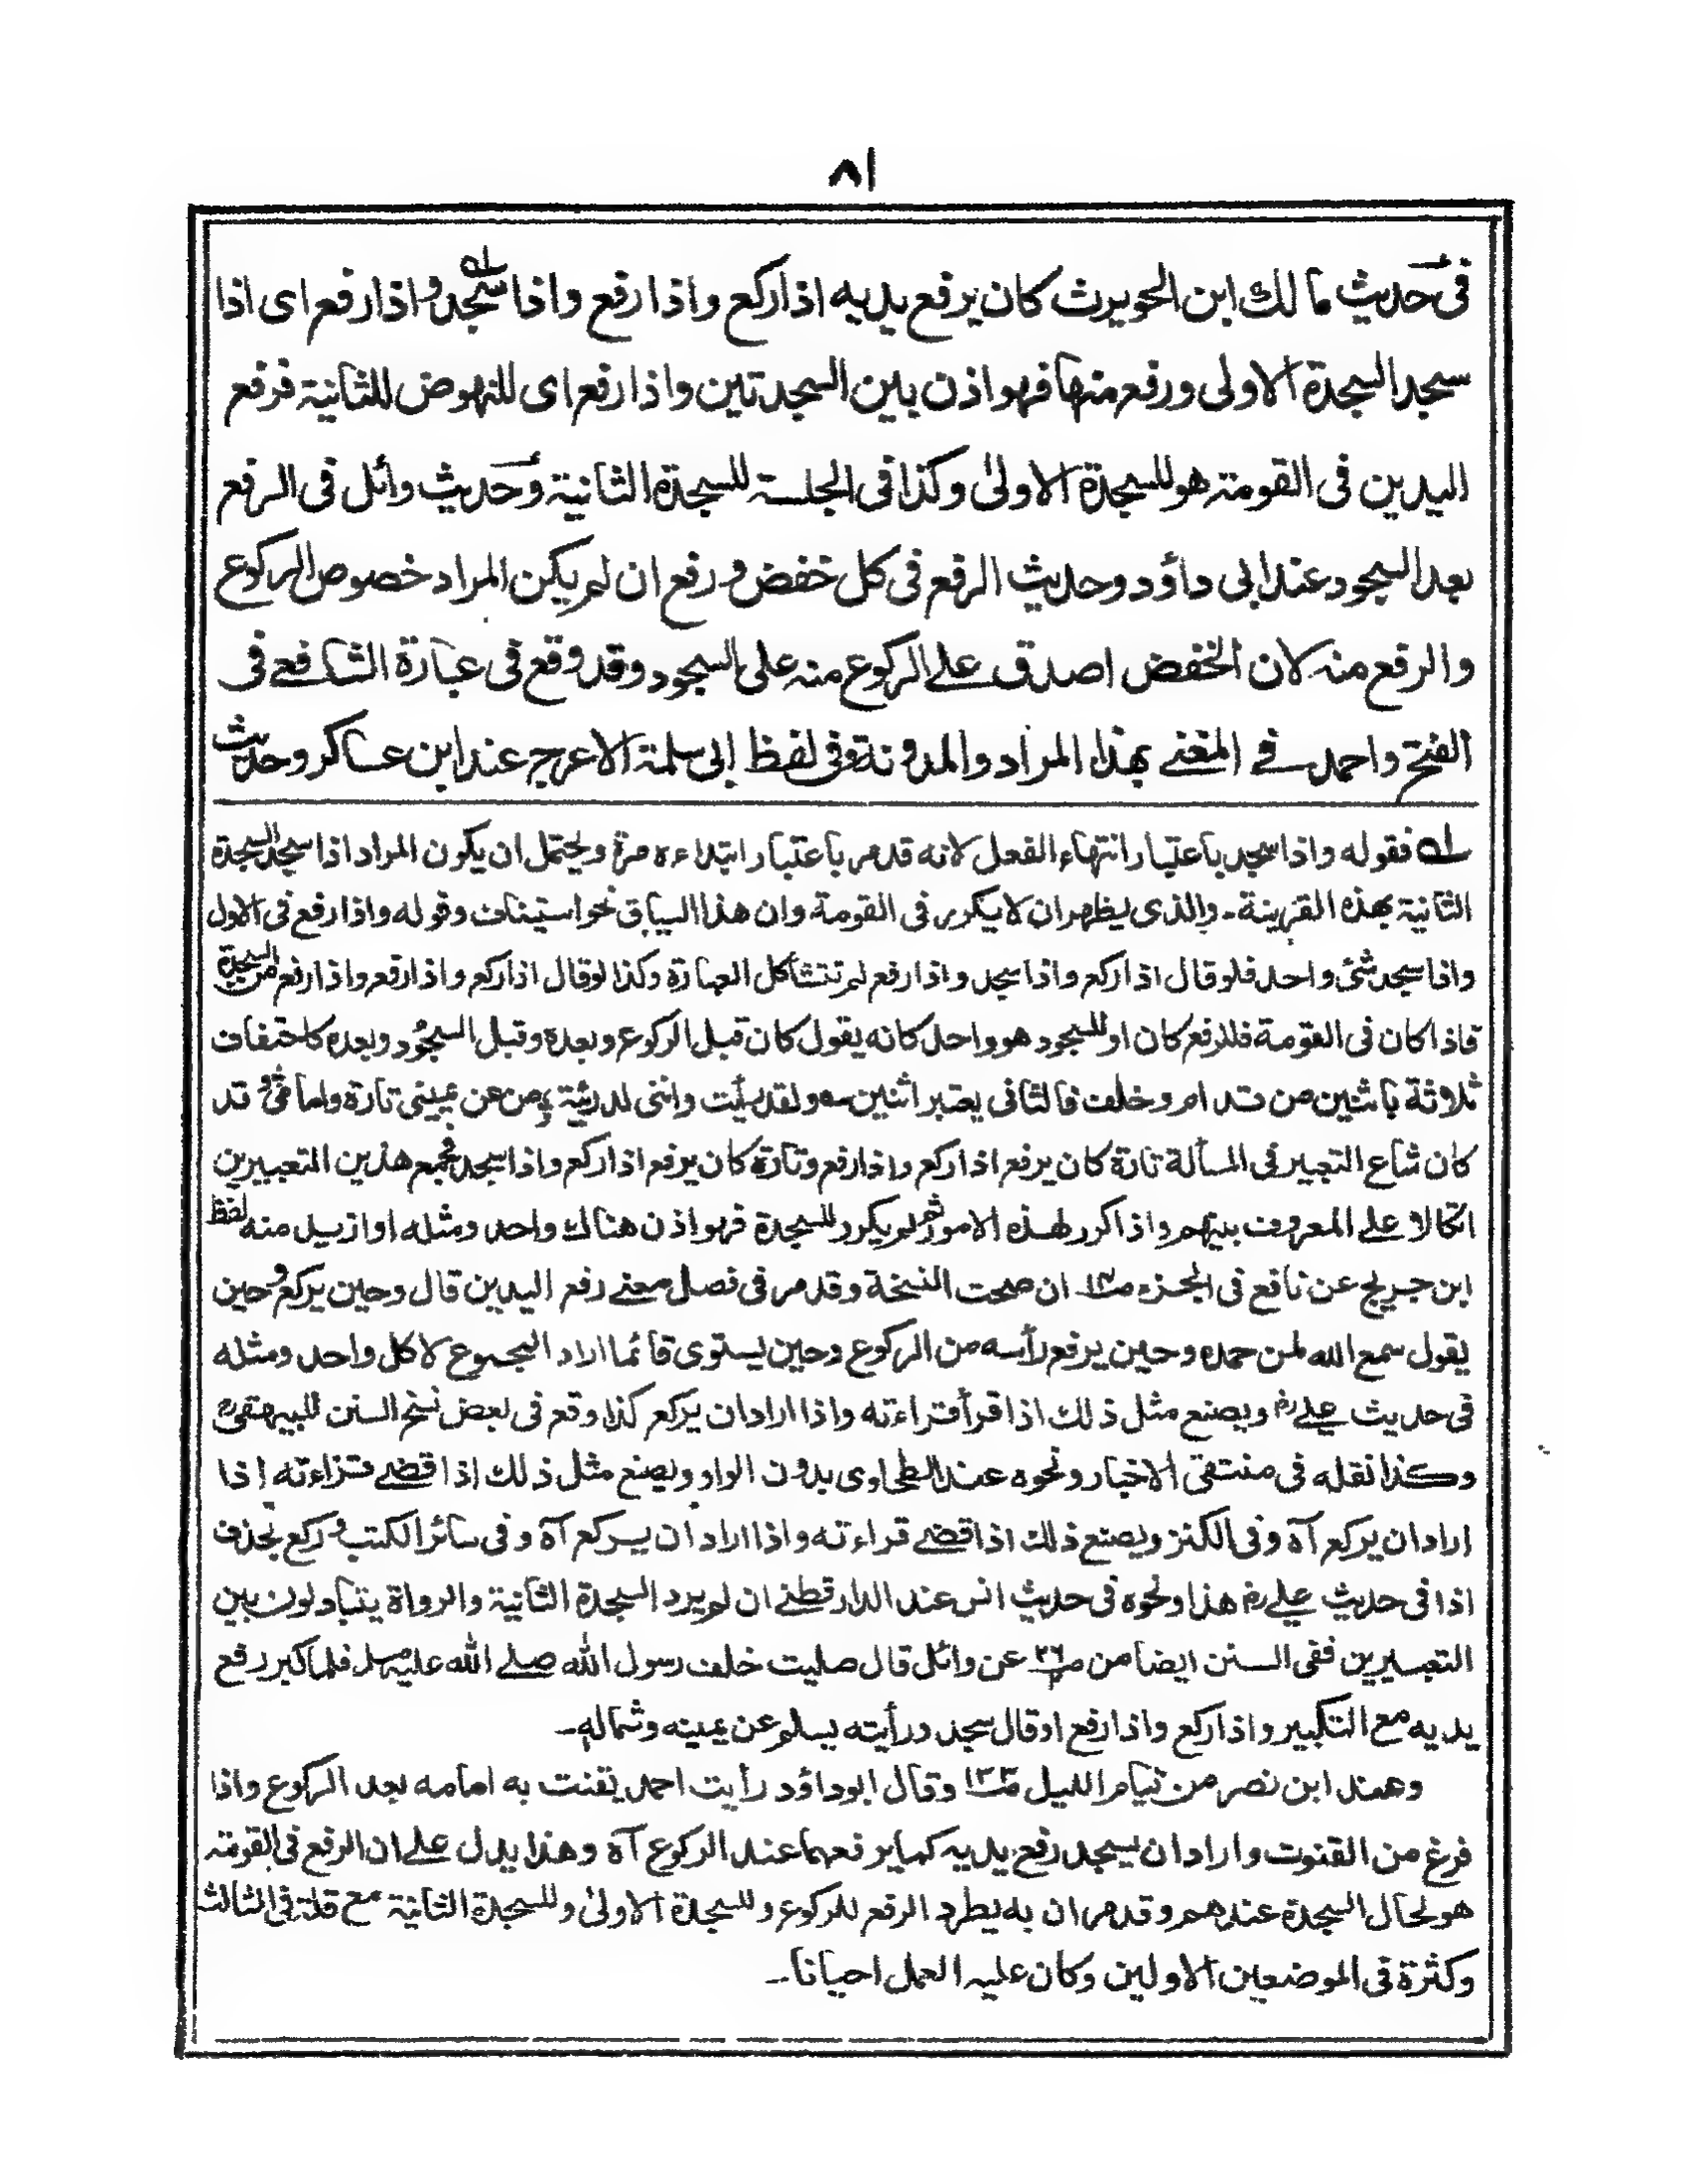 ٨١
فی حدیث مالك ابن الحویرث كان یرفع یدیه اذا ركع واذا رفع واذا سجد واذا رفع ای اذا
سجد السجدة الاولی ورفع منها فهو اذن بین السجدتین واذا رفع ای للنهوض للثانیة فرفع
الیدین فی القومة هو للسجدة الاولیٰ وكذا فی الجلسة للسجدة الثانیة وحدیث وائل فی الرفع
بعد السجود عند ابی داؤد وحدیث الرفع فی كل خفض ورفع ان لم یكن المراد خصوص الركوع
والرفع منه لان الخفض اصدق علی الركوع منه علی السجود وقد وقع فی عبارة الشافعی فی
الفتح واحمد فی المغنی بهذا المراد والمدونة وفی لفظ ابی سلمة الاعرج عند ابن عساكر وحدیث
له فقوله واذا سجد باعتبار انتهاء الفعل لانه قد مر باعتبار ابتداءه مرة ویحتمل ان یكون المراد اذا سجد السجدة
الثانیة بهذه القرینة۔ والذی یظهر ان لا یكرر فی القومة وان هذا السیاق نحو استیناف وقوله واذا رفع فی الاول
واذا سجد شئ واحد فلو قال اذا ركع واذا سجد واذا رفع لم تتشاكل العبارة وكذا لو قال اذا ركع واذا رفع واذا رفع من السجدة
فاذا كان فی القومة فللرفع كان او للسجود هو واحد كانه یقول كان قبل الركوع وبعدة وقبل السجود وبعده كاحتفاف
ثلاثة باثنین من قدام وخلف فالثانی یعتبر اثنین ولقد یمینی تارة واما قد
كان شاع التعبیر فی المسألة تارة كان یرفع اذا ركع واذا رفع وتارة كان یرفع اذا ركع واذا سجد فجمع هذین التعبیرین
اتكالا علی المعروف بینهم واذا كرر لهذه الامور ثم لم یكرر للسجدة فهو اذن هناك واحد ومثله او ازید منه لفظ
ابن جریج عن نافع فی الجزء ان صحت النسخة وقد مر فی فصل معنی رفع الیدین قال وحین یركع وحین
یقول سمع الله لمن حمده وحین یرفع رأسه من الركوع وحین یستوی قائما اراد المجموع لا كل واحد ومثله
فی حدیث علیؓ ویصنع مثل ذلك اذا قرأ قراءته واذا اراد ان یركع كذا وقع فی بعض نسخ السنن للبیهقیؒ
وكذا نقله فی منتقی الاخبار ونحوه عند الطحاوی بدون الواو ویصنع مثل ذلك اذا قضی قراءته إذا
اراد ان یركع آه وفی الكنز ویصنع ذلك اذا قضی قراءته واذا اراد ان یركع آه وفی سائر الكتب وركع بحذف
اذا فی حدیث علیؓ هذا ونحوه فی حدیث انس عند الدارقطنی ان لم یرد السجدة الثانیة والرواة یتبادلون بین
التعبیرین ففی السنن ایضا من ص٢٦ عن وائل قال صلیت خلف رسول الله صلی الله علیه وسلم فلما كبر رفع
یدیه مع التكبیر واذا ركع واذا رفع او قال سجد ورأیته یسلم عن یمینه وشماله۔
وعند ابن نصر من قیام اللیل ص١٣٢ وقال ابوداؤد رأیت احمد یقنت به امامه بعد الركوع واذا
فرغ من القنوت واراد ان یسجد رفع یدیه كما یرفعهما عند الركوع آه وهذا یدل علی ان الرفع فی القومة
هو لحال السجدة عندهم وقد مر ان به یطرد الرفع للركوع وللسجدة الاولیٰ وللسجدة الثانیة مع قلة فی الثالث
وكثرة فی الموضعین الاولین وكان علیه العمل احیانا۔